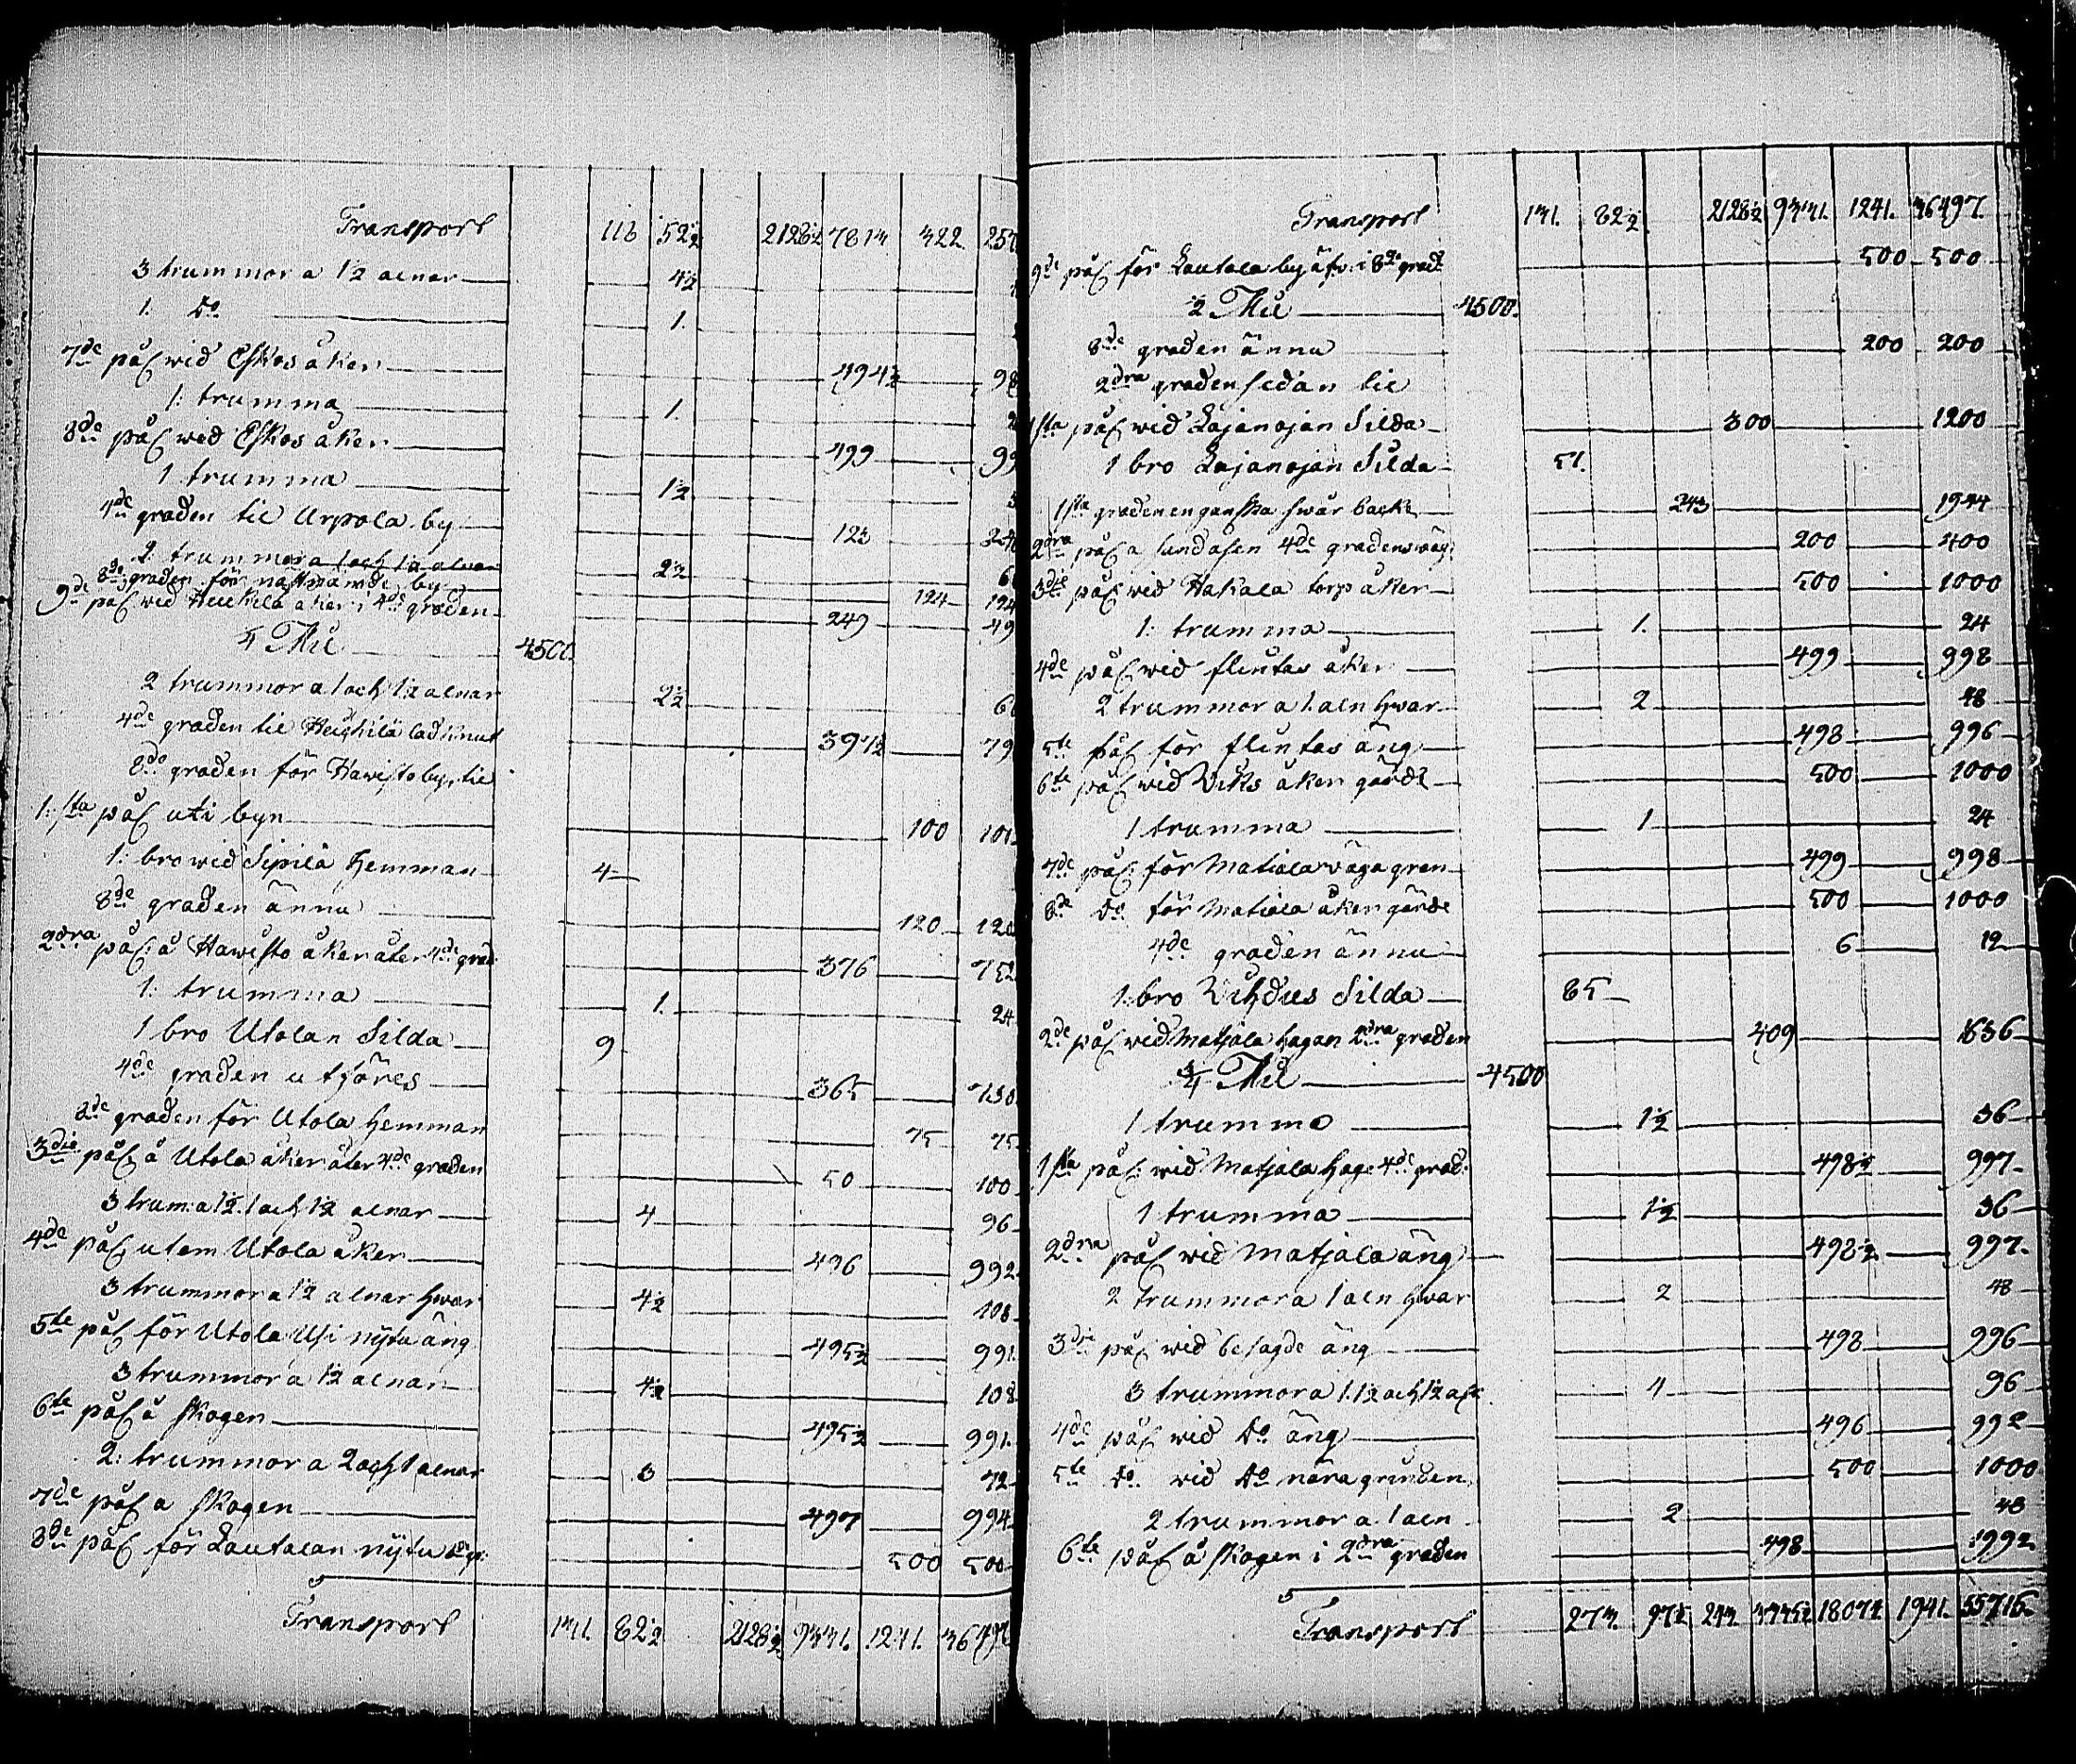 Transport 118 52½ 2128½ 7813 322 257
3 trummor a 1½ alnar 4½
1: Do 1.
7de pål wid Eskos åker 494½ 98
1: trumma 1.
8de pål wid Eskos åker 499 99
1 trumma 1½
4de graden til Urpola by 123 246
2: trummor a 1 och 1½ alnar 2½ 6
8de graden för by 124 124
9de pål wid Heickilä åker i 4de graden 249 49
¼ Mil 4500.
2 trummor a 1 och 1½ alnar 2½ 6
4de graden til Heickilä ladknut 397½ 79
8de graden för Hawisto by, til
1:sta pål uti byn 100 10
1: bro wid Sipilä Hemman 4
8de graden ännu 120 120
2dra pål: å Hawisto åker åter 4de grad: 376 752
1: trumma 1. 24
1 bro Utolan Silda 9
4de graden utföres 365 730
8de graden för Utola Hemman 75 75
3die pål å Utola åker åter 4de graden 50 100
3 trum: a 1½. 1 och 1½ alnar 4 96
4de pål utom Utola åker 496 992
3 trummor a 1½ alnar hwar 4½ 108
5te pål för Utola Usi nijtu äng 495½ 991.
3 trummor a 1½ alnar 4½ 108
6te pål å skogen 495½ 991.
2: trummor a 2 och 1 alnar 3 72
7de pål a skogen 497 994
8de pål för Lautalan nijtu 500 500
Transport 131. 82½ 2128½ 9331. 1241. 36497
Transport 131. 82½ 2128½ 9331. 1241. 36497.
9de pål för Lautala by åfv: i 8de grad: 500 500
½ Mil 4500.
8de graden ännu 200 200
2dra graden sedan til
1sta pål wid Lajanojan Silda 300 1200
1 bro Lajanojan Silda 57.
1sta graden en ganska swår backe 243 1944
2dra pål a sundåsen 4de gradens wäg: 200 400
3die pål wid Hakala torp åker 500 1000
1: trumma 1. 24
4de pål wid flintas åker 499 998
2 trummor a 1 aln hwar 2 48
5te pål för flintas äng 498 996
6te pål wid Wiks åker gärde 500 1000
1 trumma 1 24
7de pål: för Matiala wäga gren 499 998
8de Do för Matiala åker gärde 500 1000
4de graden ännu 6 12
1: bro Wihdus Silda 85
2de pål wid Matjala hagan 2dra graden 409 1636
¾ Mil 4500
1 trumma 1½ 36
1sta pål: wid Matjala hage 4de grad: 498½ 997
1 trumma 1½ 36
2dra pål wid Matjala äng 498½ 997.
2 trummor a 1 aln hwar 2 48
3die pål wid besagde äng 498 996
3 trummor a 1. 1½ och 1½ aln 4 96
4de pål wid Do äng 496 992
5te Do wid Do nära grinden 500 1000
2 trummor a 1 aln 2 48
6te pål å skogen i 2dra graden 498 1992
Transport 273. 97½ 243. 3335½ 18074 1941. 55716